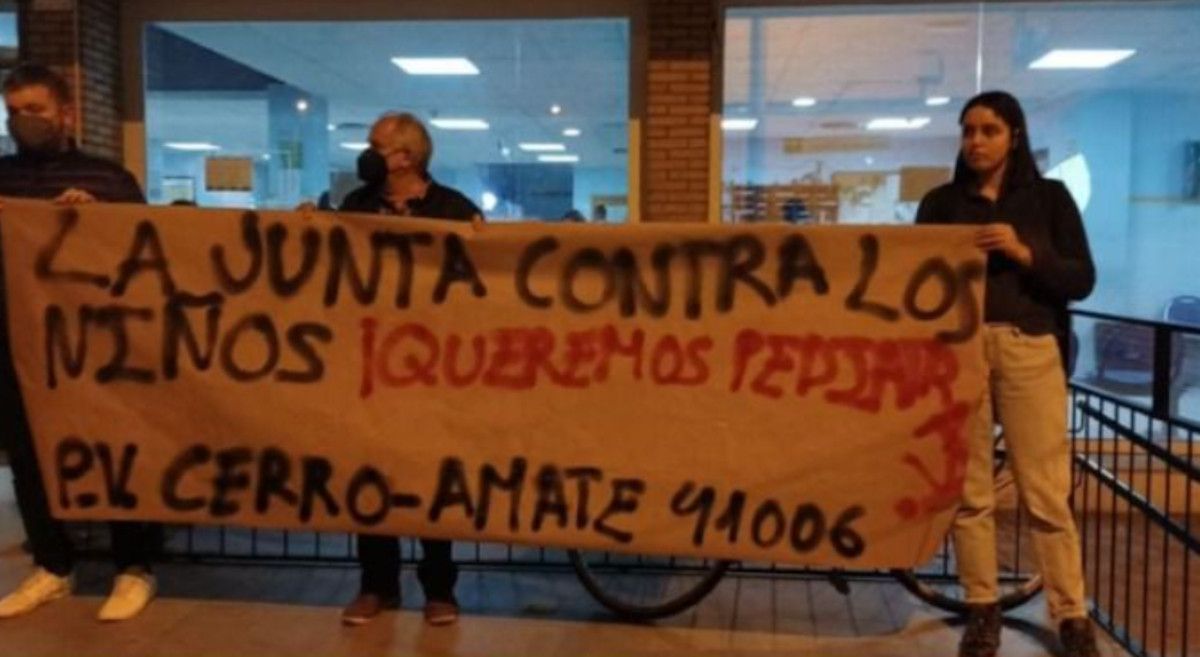 LA JUNTA CONTRA LOS
NIÑOS ¡QUEREMOS PEDIATR
P.V. CERRO-AMATE 41006